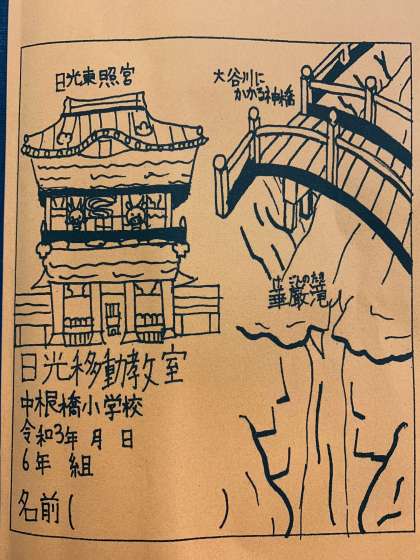 日光東照宮
大谷川に
かかる神橋
華厳滝
けごんのたき
日光移動教室
中根橋小学校
令和3年 月 日
6年 組
名前( )